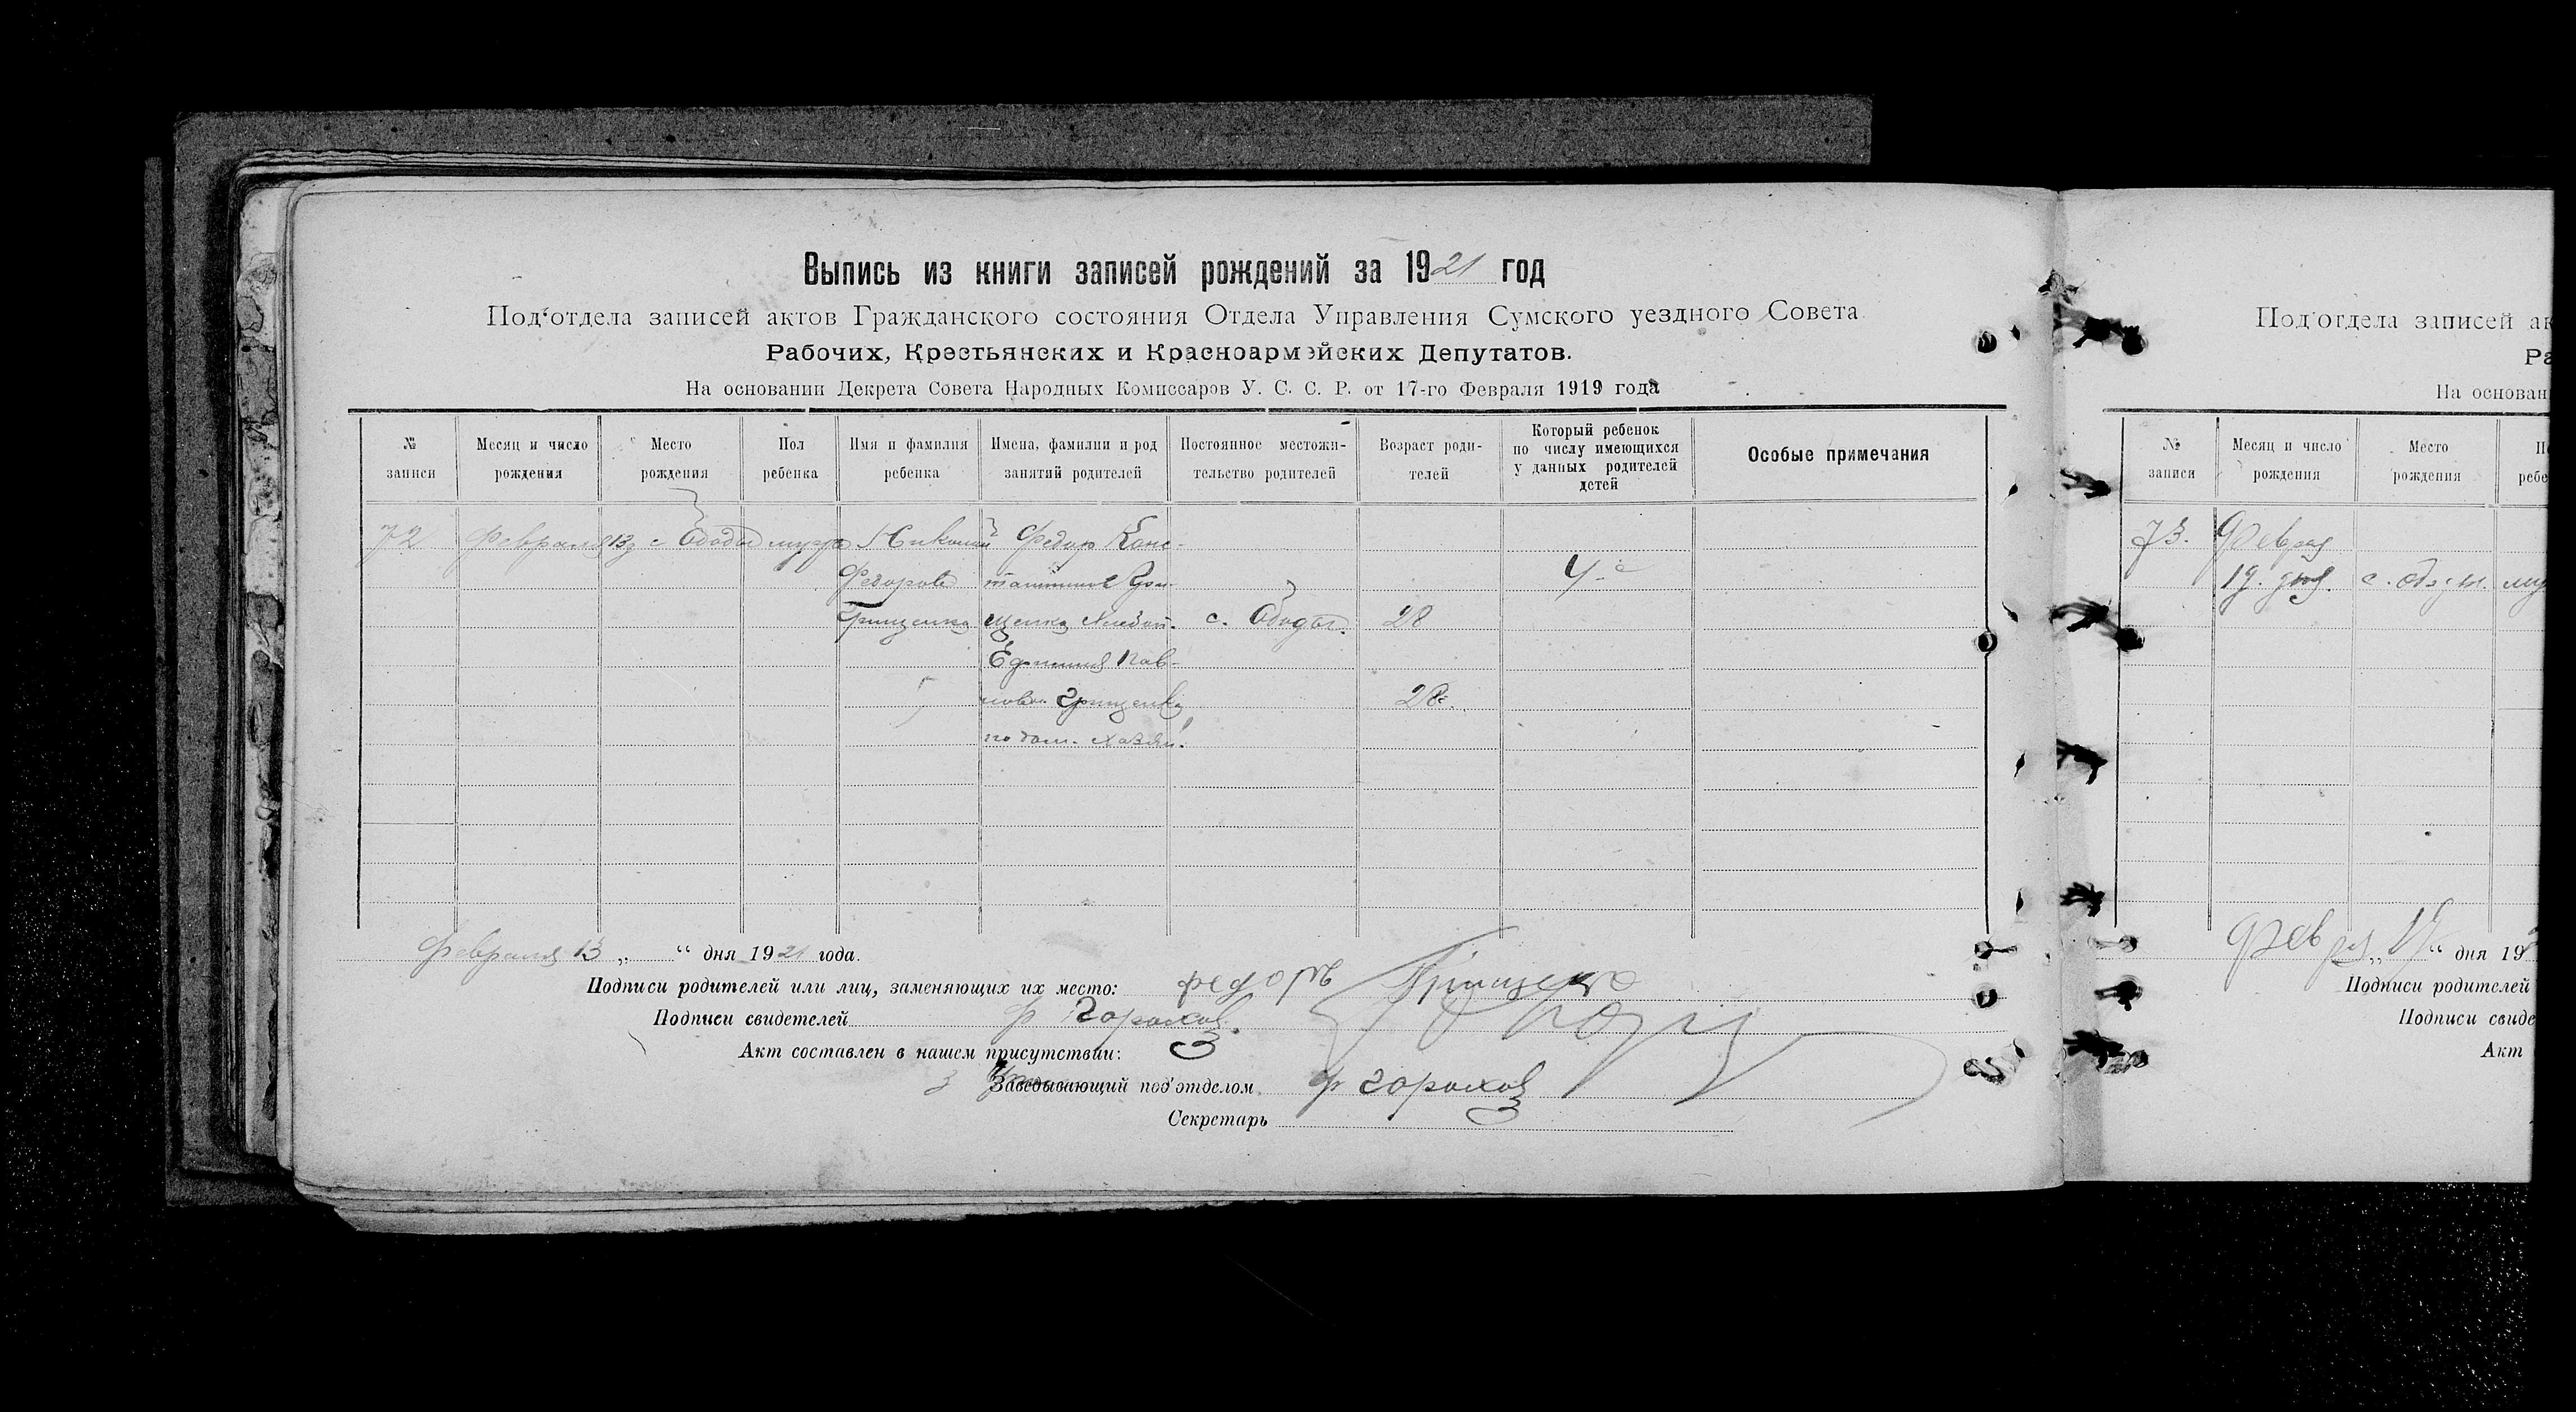 Выпись из книги записей рождений за 1921 год
Под'отдела записей актов Гражданского состояния Отдела Управления Сумского уездного Совета
Рабочих, Крестьянских и Красноармейских Депутатов.
На основании Декрета Совета Народных Комиссаров У. С. С. Р. от 17-го Февраля 1919 года
№ записи
Месяц и число рождения
Место рождения
Пол ребенка
Имя и фамилия ребенка
Имена, фамилии и род занятий родителей
Постоянное местожительство родителей
Возраст родителей
Который ребенок по числу имеющихся у данных родителей детей
Особые примечания
72 Февраля 13 с Ободы мужс Николай Федор Конс-
Федоров тантинов Гри- 4-й
Грищенко щенко Хлебоп. с. Ободы. 28
Ефимия Пав-
лова Грищенко 28.
по дом. хозяй.
Февраля 13 „ “ дня 1921 года.
Подписи родителей или лиц, заменяющих их место: Федоръ Грищенко
Подписи свидетелей Ф Горохов
Акт составлен в нашем присутствии:
Заведывающий под'отделом Ф Горохов
Секретарь
Под'отдела записей ак
Ра
На основан
№ записи
Месяц и число рождения
Место рождения
П ребе
73. Феврал
19. дня. с. Ободы. му
Фев „ “ дня 19
Подписи родителей
Подписи свиде
Акт